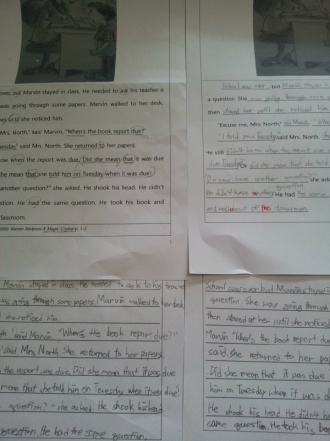 over, but Marvin stayed in class. He needed to ask his teacher a
was going through some papers. Marvin walked to her desk,
until she noticed him.
Mrs. North," said Marvin. "When's the book report due?"
Tuesday," said Mrs. North. She returned to her papers.
know when the report was due. Did she mean that it was due
she mean that she told him on Tuesday when it was due?
another question?" she asked. He shook his head. He didn't
question. He had the same question. He took his book and
classroom.
School was over, but Marvin stayed in
a question. She was going through some
then stood until she noticed him
"Excuse me, Mrs. North," said Marvin
"I told you Tuesday" said Mrs. North
He still didn't know when the report was
due Tuesday or did she mean that she told
Do you have another question? she asked
He didn't have another question He had the same
and out of the classroom
Marvin stayed in class. He needed to ask to his teacher
was going through some papers. Marvin walked to her desk
she noticed him.
said Marvin. "Where's the book report due?"
said Mrs. North. She returned to her papers
the report was due. Did she mean that it was due
mean that she told him on Tuesday when it was due?
question?" she asked. He shook his head
question. He had the same question.
School was over but Marvin stayed in
question. She was going through
then stood at her until she noticed
Marvin. "When's the book report
said. she returned to her
Did she mean that it was due
him on Tuesday when it was due
He shook his head. He didn't
same question. He took his